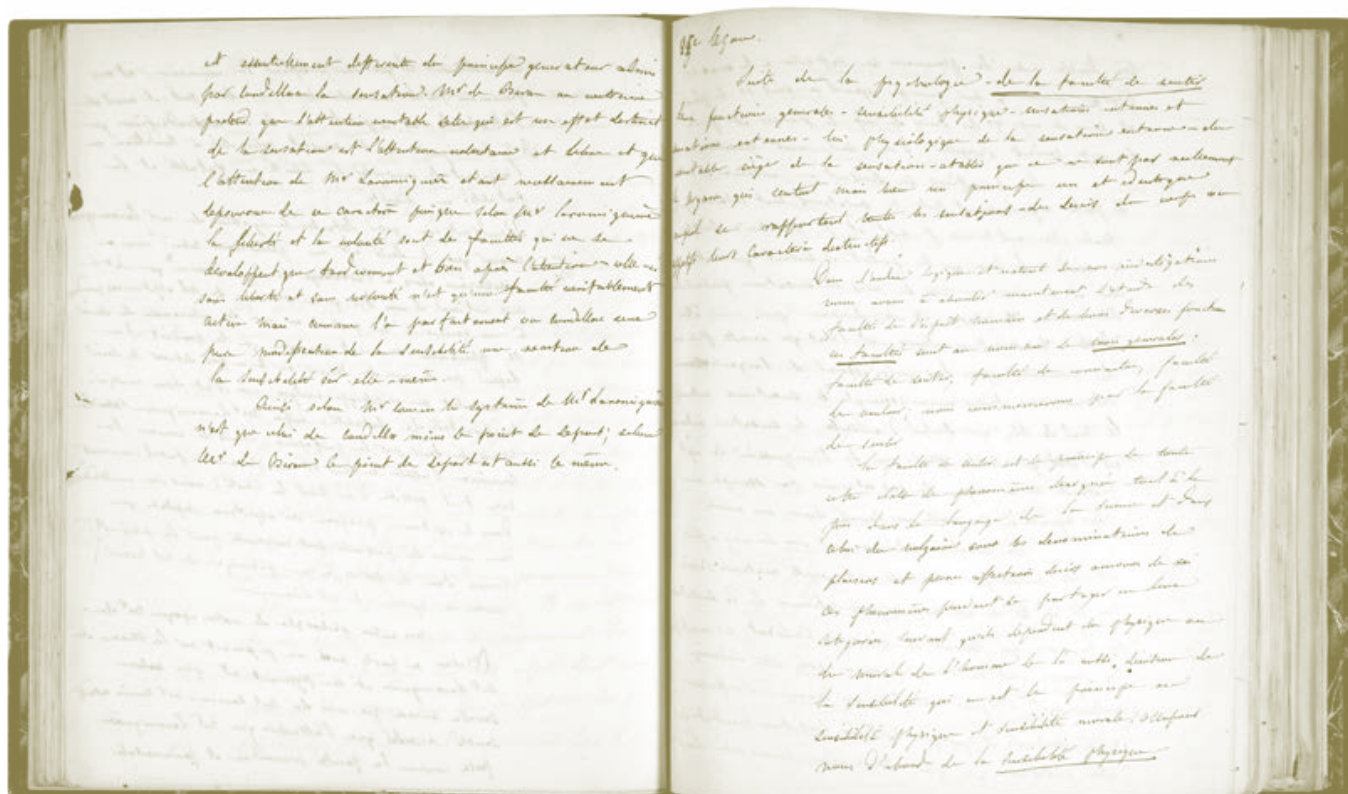 et essentiellement differente du principe generateur admis
par Condillac la sensation. Mr de Biran au contraire
pretend que l'attention veritable celle qui est un effet distinct
de la sensation est l'attention volontaire et libre et que
l'attention de Mr Laromiguière etant reellement
depourvue de ce caractère puisque selon Mr Laromiguière
la liberté et la volonté sont des facultés qui ne se
developpent que tardivement et bien après l'attention - celle-ci
sans liberté et sans volonté n'est qu'une faculté veritablement
active mais comme l'a parfaitement vu Condillac une
pure modification de la sensibilité une reaction de
la sensibilité sur elle-même.
Ainsi selon Mr le système de Mr Laromiguière
n'est que celui de Condillac moins le point de depart; selon
Mr de Biran le point de depart est aussi le même.
leçon.
Suite de la psychologie - de la faculté de sentir
fonctions generales - sensibilité physique - sensations internes et
externes - loi physiologique de la sensation externe - du
siège de la sensation - etablir que ce ne sont pas nullement
organes qui sentent mais bien un principe un et identique
se rapportent toutes les sensations - des desirs du corps
leurs caractères distinctifs.
Dans l'ordre logique et naturel de nos investigations
nous avons à aborder maintenant l'etude des
facultés de l'esprit humain et de leurs diverses fonctions
ces facultés sont au nombre de trois generales:
faculté de sentir, faculté de connaitre, faculté
de vouloir, nous commencerons par la faculté
de sentir
La faculté de sentir est le principe de toute
cette classe de phenomènes designés tout à la
fois dans le langage de la science et dans
celui du vulgaire sous les denominations de
plaisirs et peines affections desirs amour de soi
ces phenomènes peuvent se partager en deux
categories suivant qu'ils dependent du physique ou
du moral de l'homme de là aussi division de
la sensibilité qui en est le principe en
sensibilité physique et sensibilité morale. Occupons
nous d'abord de la sensibilité physique.